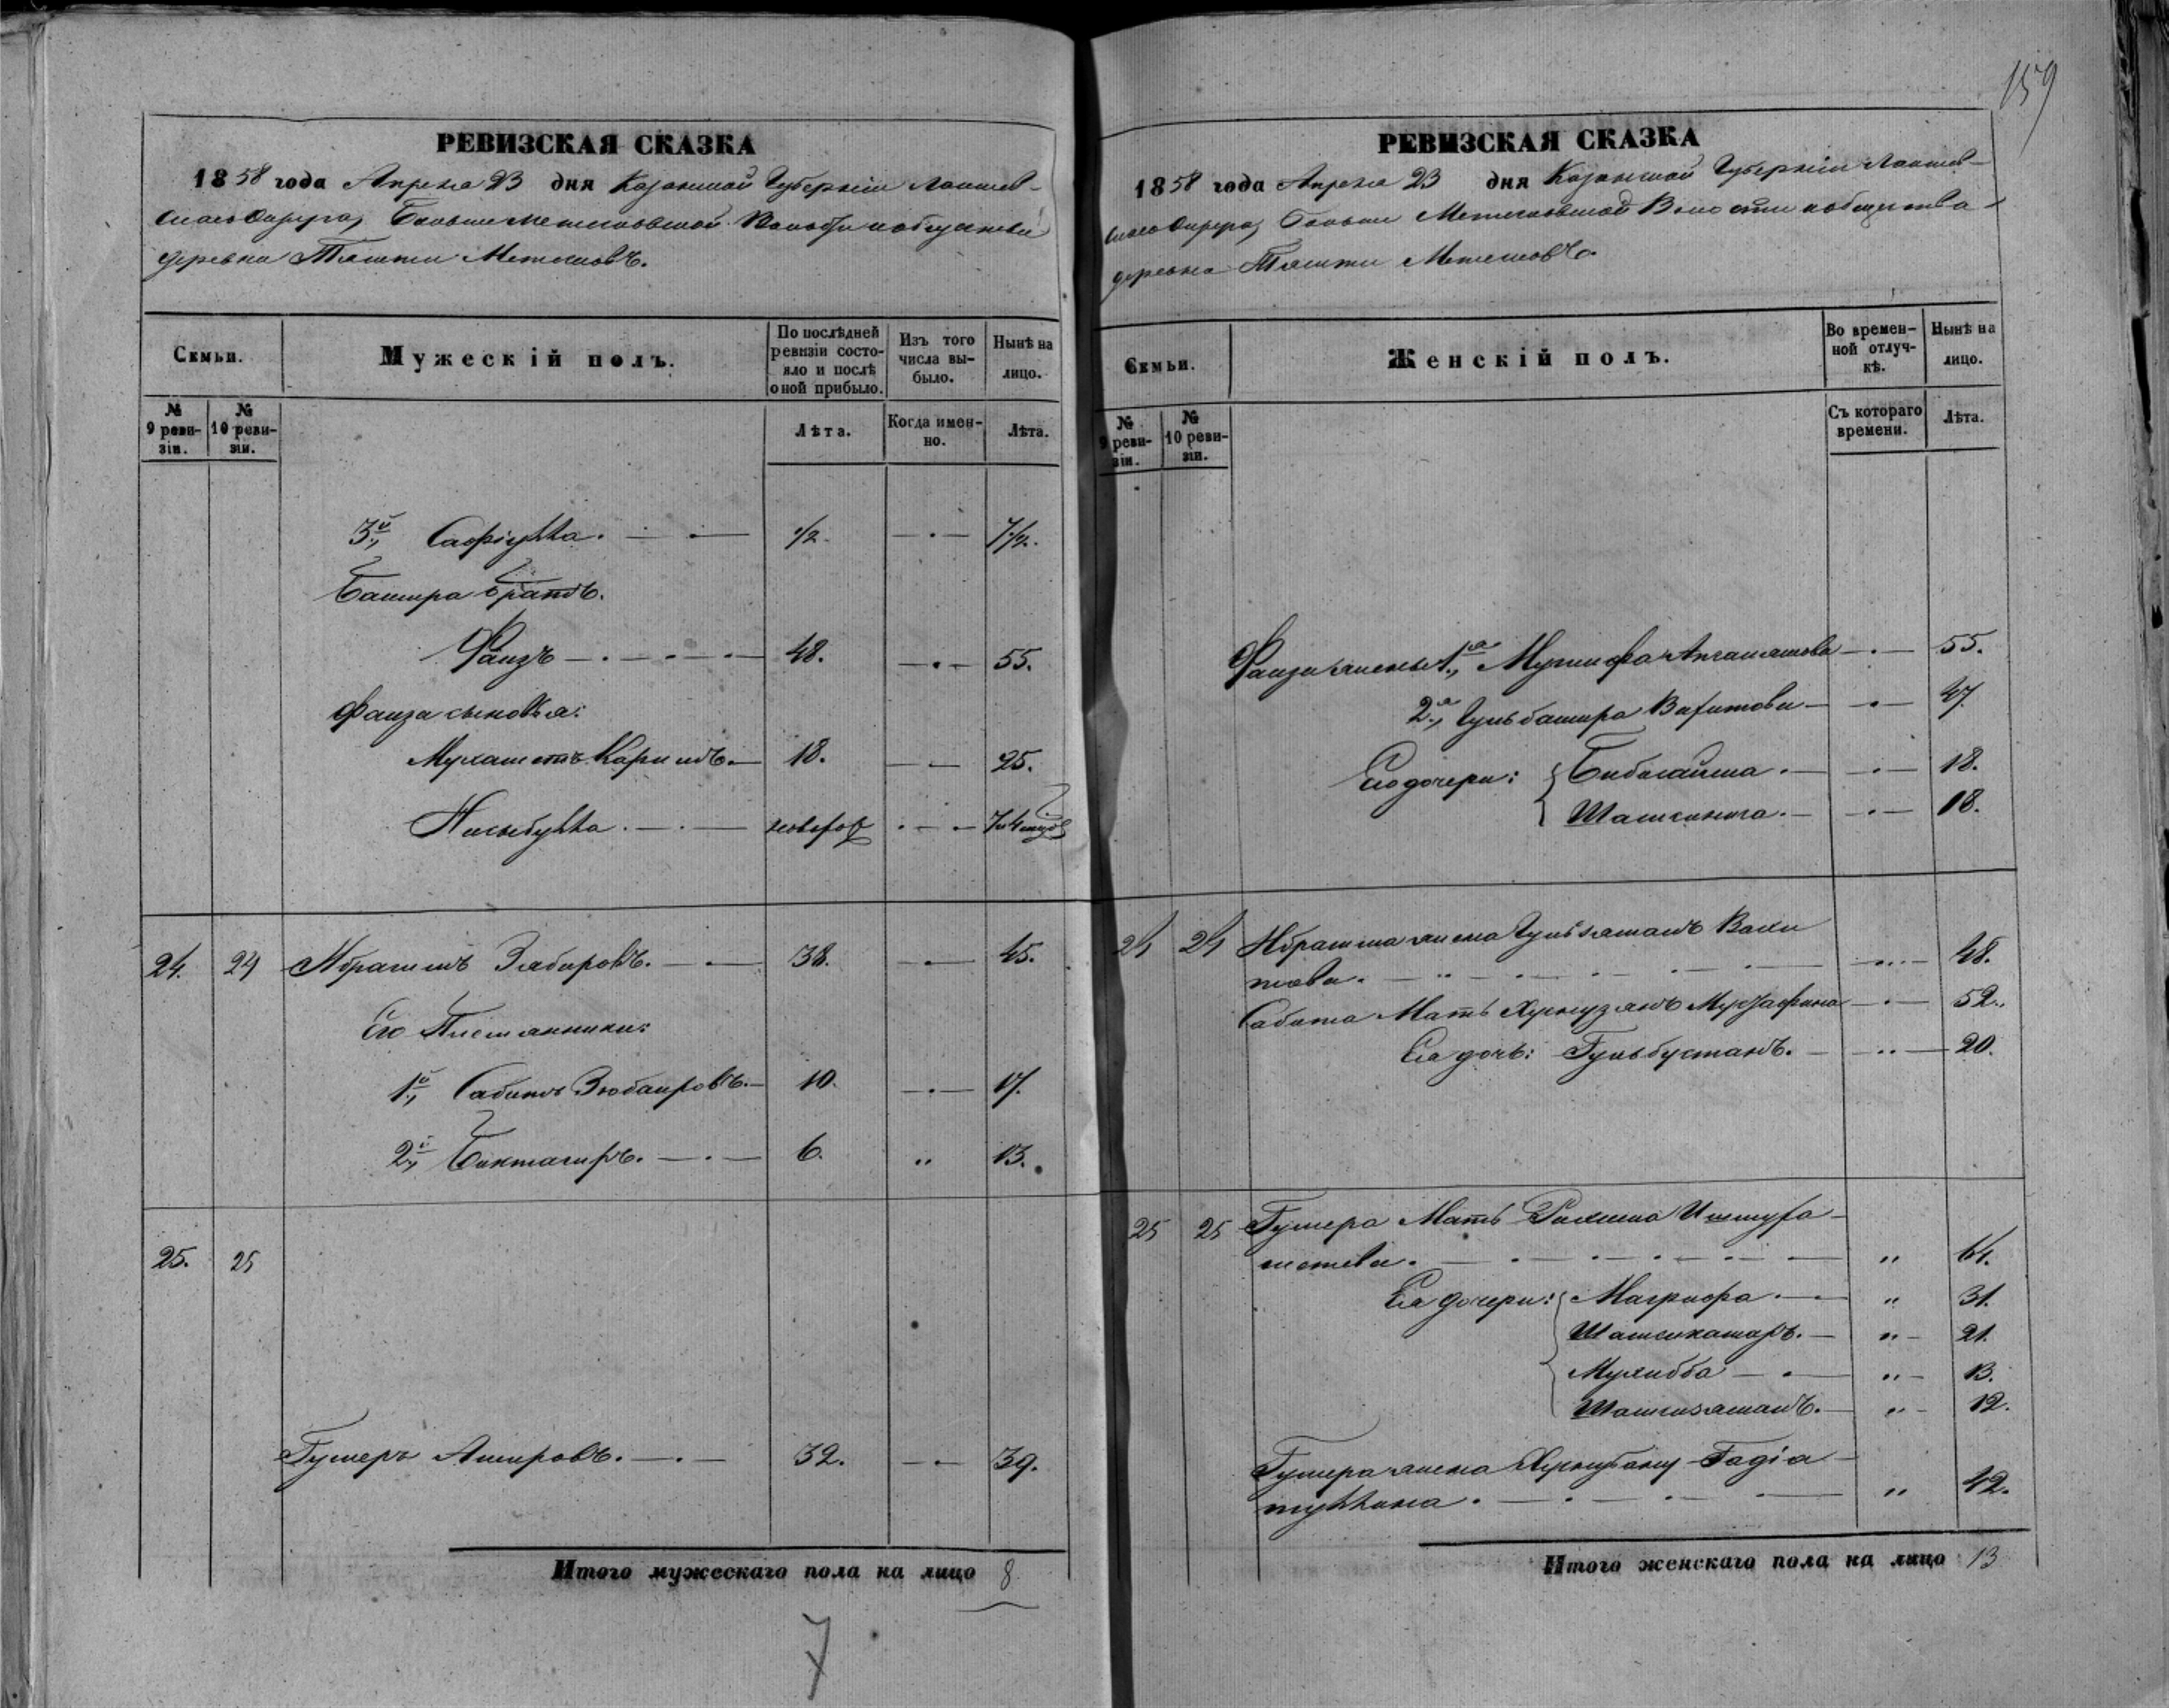 159
РЕВИЗСКАЯ СКАЗКА
1858 года Апреля 23 дня Казанской Губернiи Лаишев-
скаго Округа, Больше Метесковской Волости и общества
деревни Тямти Метесковъ.
Семьи.
Мужескiй полъ.
По послѣдней ревизiи состояло и послѣ оной прибыло.
Изъ того числа выбыло.
Нынѣ на лицо.
№ 9 реви-зiи.
№ 10 реви-зiи.
Лѣта.
Когда имен-но.
Лѣта.
3й, Сафiулла. 1/2. 7 1/2.
Башира братъ.
Фаизъ 48. 55.
Фаиза сыновья:
Мухаметъ Каримъ. 18. 25.
Насыбулла. новорож 7 и 4 мцов
24. 24 Ибрагимъ Забировъ. 38. 45.
Его Племянники:
1й, Сабитъ Зюбаировъ. 10. 17.
2й, Биктагиръ. 6. „ 13.
25. 25
Гумеръ Амировъ. 32. 39.
Итого мужескаго пола на лицо 8
7
РЕВИЗСКАЯ СКАЗКА
1858 года Апреля 23 дня Казанской Губернiи Лаишев-
скаго Округа, Больше Метесковской Волости и общества
деревни Тямти Метесковъ.
Семьи.
Женскiй полъ.
Во времен-ной отлуч-кѣ.
Нынѣ на лицо.
№ 9 реви-зiи.
№ 10 реви-зiи.
Съ котораго времени.
Лѣта.
Фаиза жены 1я, 55.
2я, Гульбашира Вагитова 47.
Его дочери: Бибигайша. 18.
18.
24 24 Ибрагима жена Гульзямалъ Вахи
това. 48.
Сабита Мать 52.
Ея дочь: Гульбустанъ. 20.
25 25 Гумера Мать
„ 64.
Ея дочери: Магрифа. „ 31.
Шамсикамаръ. „ 21.
Мухибба „ 13.
Шамсиямалъ. „ 12.
Гумера жена Хуснубану Гадiа-
туллина. „ 42.
Итого женскаго пола на лицо 13